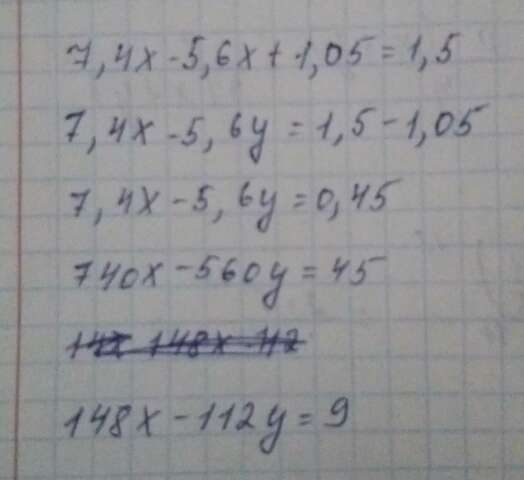 7,4x - 5,6x + 1,05 = 1,5
7,4x - 5,6y = 1,5 - 1,05
7,4x - 5,6y = 0,45
740x - 560y = 45
148x - 112y = 9